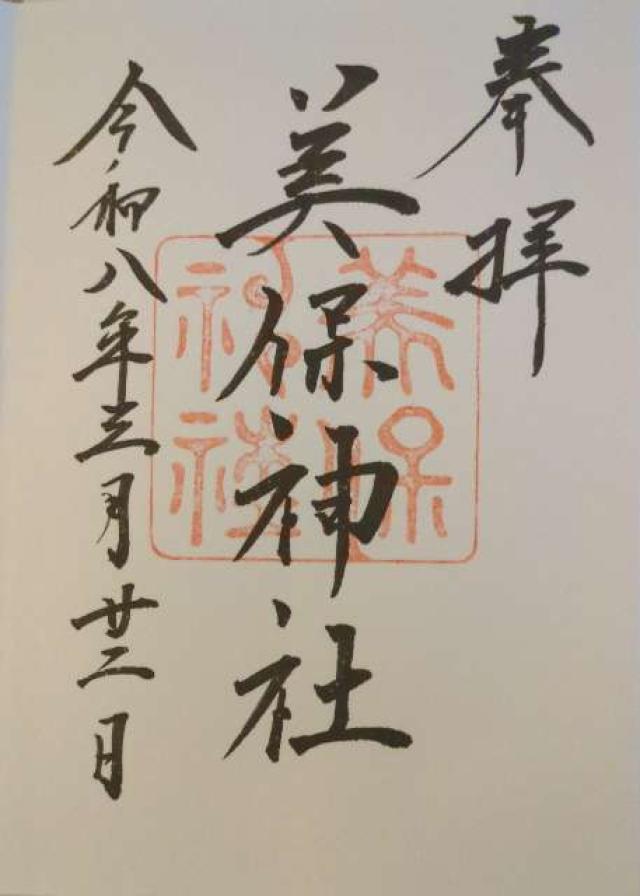 奉拝
美保神社
令和八年三月廿二日
美保神社